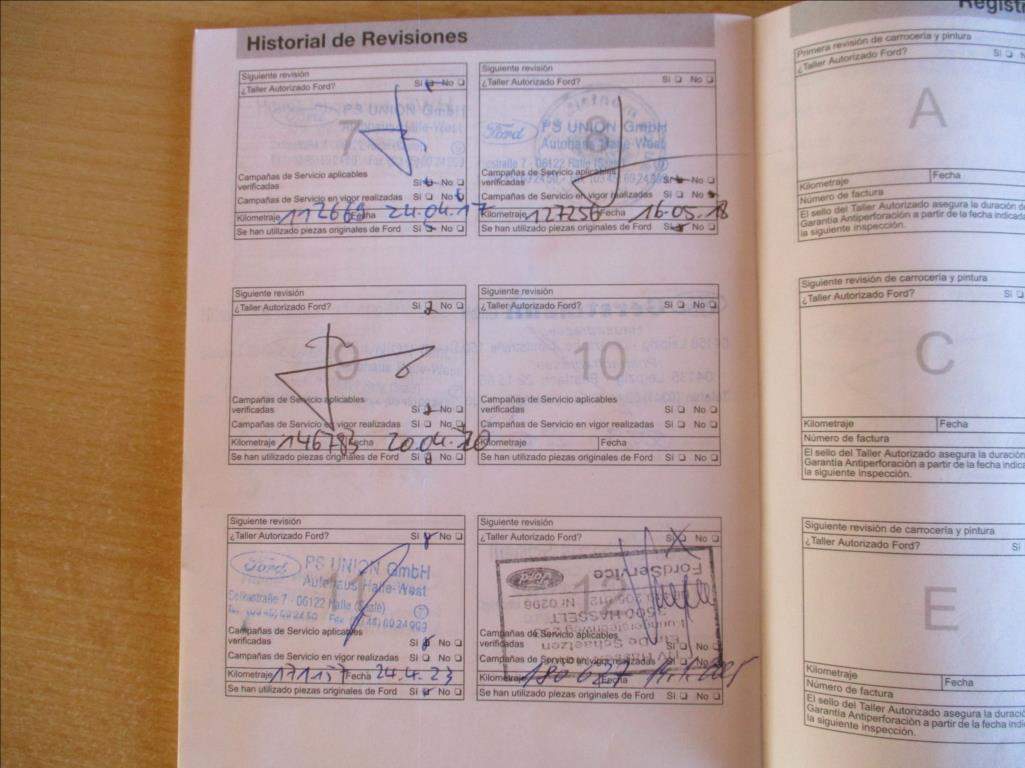 Historial de Revisiones
Siguiente revisión
¿Taller Autorizado Ford? Sí No
7
PS UNION GmbH
Campañas de Servicio aplicables
verificadas Sí No
Campañas de Servicio en vigor realizadas Sí No
Kilometraje 112669 Fecha 24.04.17
Se han utilizado piezas originales de Ford Sí No
Siguiente revisión
¿Taller Autorizado Ford? Sí No
8
Ford PS UNION GmbH
Autohaus Halle-West
06122 Halle (Saale)
Campañas de Servicio aplicables
verificadas Sí No
Campañas de Servicio en vigor realizadas Sí No
Kilometraje 127256 Fecha 16.05.18
Se han utilizado piezas originales de Ford Sí No
Siguiente revisión
¿Taller Autorizado Ford? Sí No
9
Campañas de Servicio aplicables
verificadas Sí No
Campañas de Servicio en vigor realizadas Sí No
Kilometraje 146783 Fecha 20.04.20
Se han utilizado piezas originales de Ford Sí No
Siguiente revisión
¿Taller Autorizado Ford? Sí No
10
Campañas de Servicio aplicables
verificadas Sí No
Campañas de Servicio en vigor realizadas Sí No
Kilometraje Fecha
Se han utilizado piezas originales de Ford Sí No
Siguiente revisión
¿Taller Autorizado Ford? Sí No
11
Ford PS UNION GmbH
Autohaus Halle-West
06122 Halle (Saale)
Campañas de Servicio aplicables
verificadas Sí No
Campañas de Servicio en vigor realizadas Sí No
Kilometraje 171157 Fecha 24.4.23
Se han utilizado piezas originales de Ford Sí No
Siguiente revisión
¿Taller Autorizado Ford? Sí No
12
Ford
FordService
Nr 0298
3500 HASSELT
Campañas de Servicio aplicables
verificadas Sí No
Campañas de Servicio en vigor realizadas Sí No
Kilometraje Fecha
Se han utilizado piezas originales de Ford Sí No
Primera revisión de carrocería y pintura
¿Taller Autorizado Ford? Sí
A
Kilometraje Fecha
Número de factura
El sello del Taller Autorizado asegura la duración de
Garantía Antiperforación a partir de la fecha
la siguiente inspección.
Siguiente revisión de carrocería y pintura
¿Taller Autorizado Ford? Sí
C
Kilometraje Fecha
Número de factura
El sello del Taller Autorizado asegura la
Garantía Antiperforación a partir de la fecha
la siguiente inspección.
Siguiente revisión de carrocería y pintura
¿Taller Autorizado Ford? Sí
E
Kilometraje Fecha
Número de factura
El sello del Taller Autorizado asegura la
Garantía Antiperforación a partir de la fecha
la siguiente inspección.